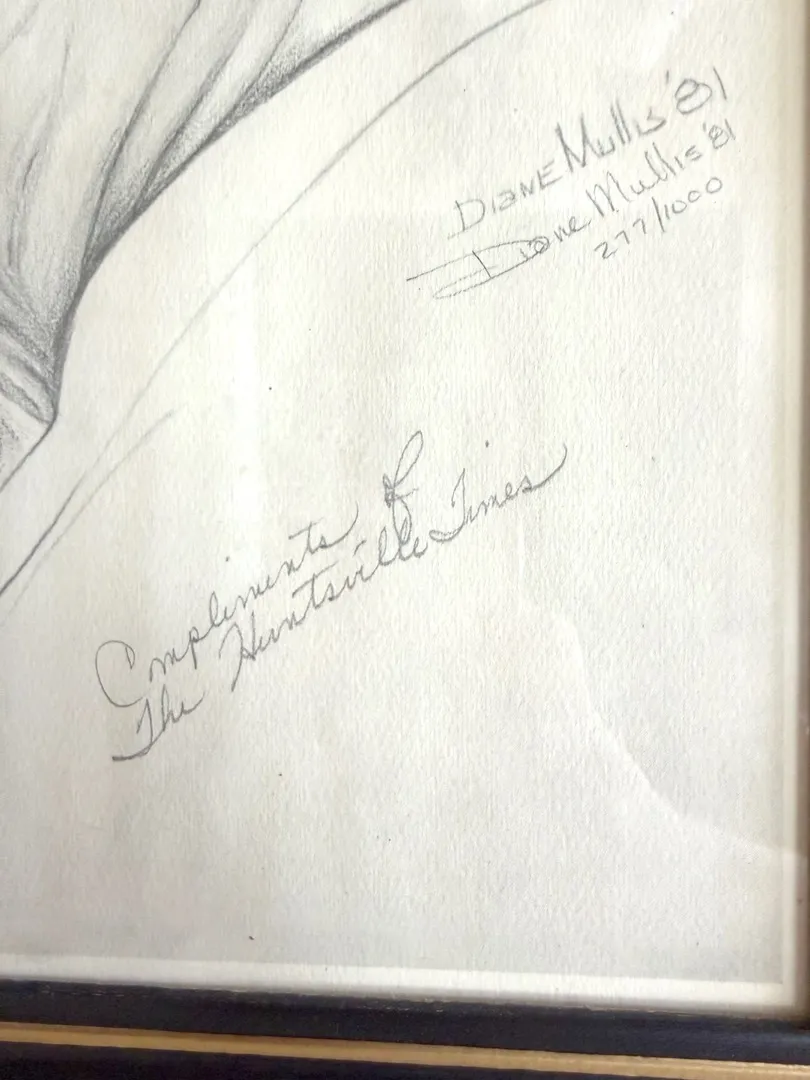 Diane Mullis '81
Diane Mullis '81
277/1000
Compliments of
The Huntsville Times